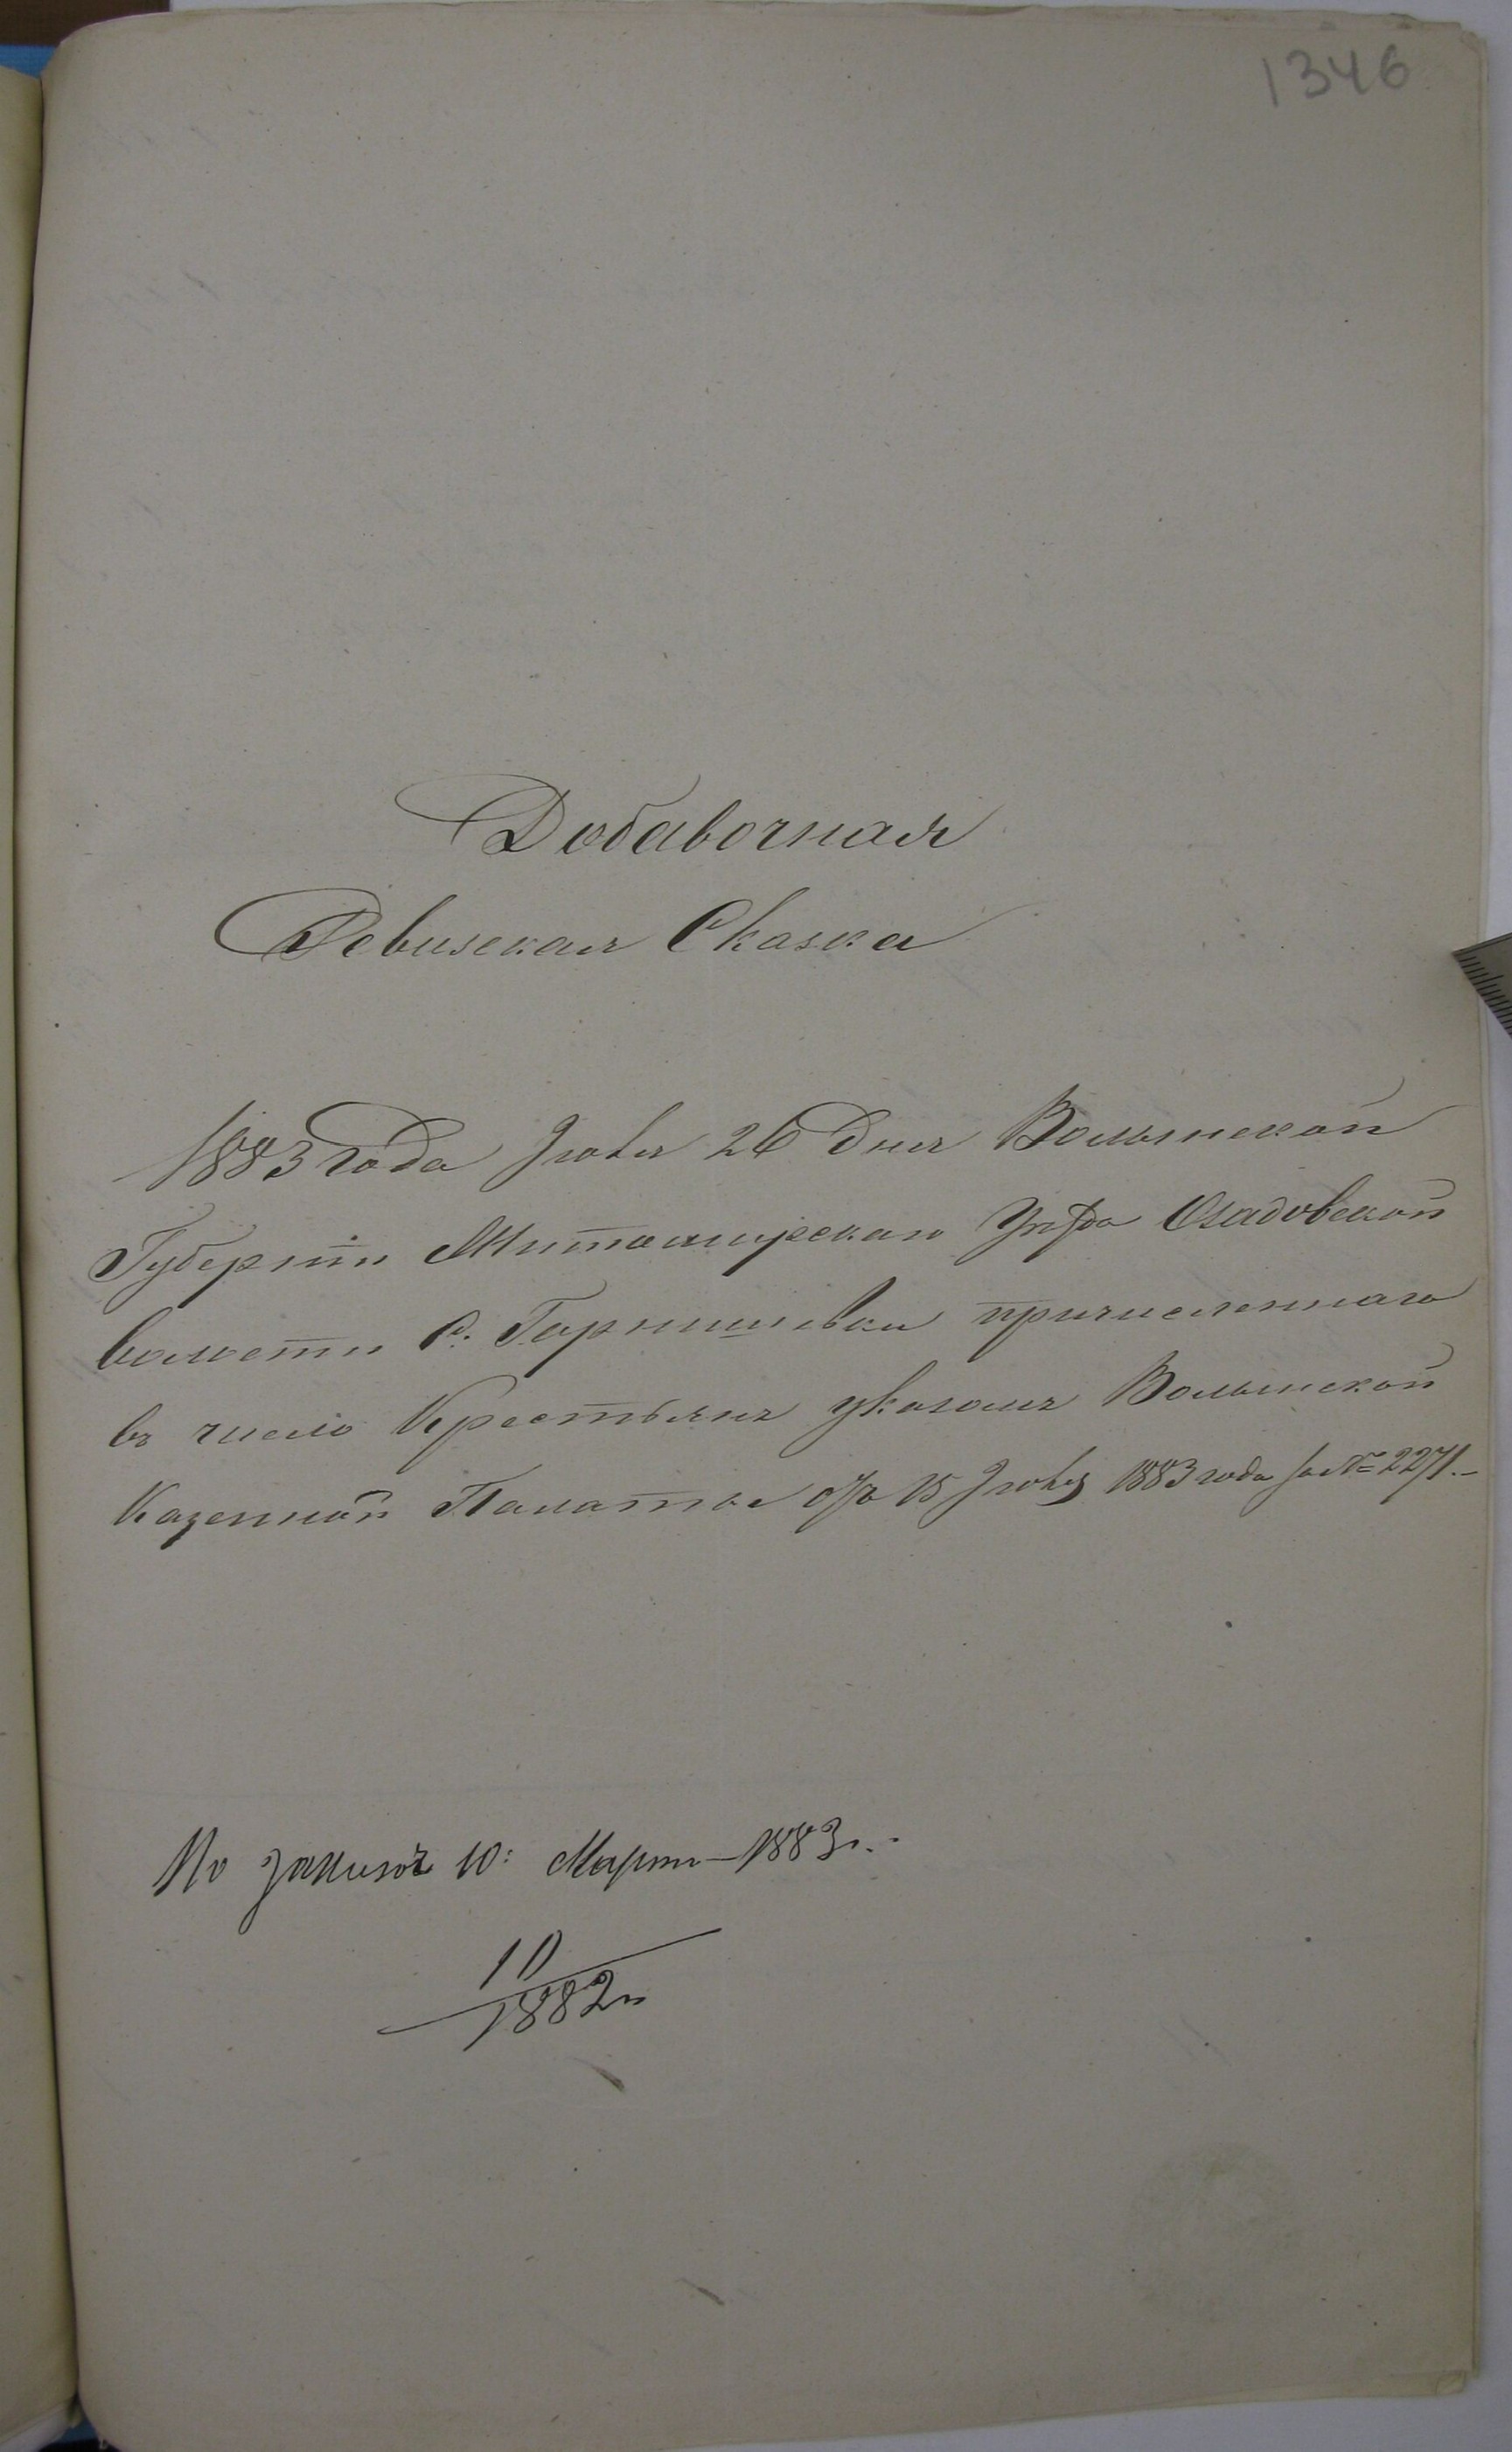 1346
Добавочная
Ревизская Сказка
1883 года Іюля 26 Дня Волынской
Губерніи Житомирскаго Уѣзда
волости с. Горншевки причисленнаго
въ число Крестьянъ указомъ Волынской
Казенной Палаты отъ 15 Іюля 1883 года за № 2271.–
По записи 10: Марта – 1883 г.
10
1882 г.